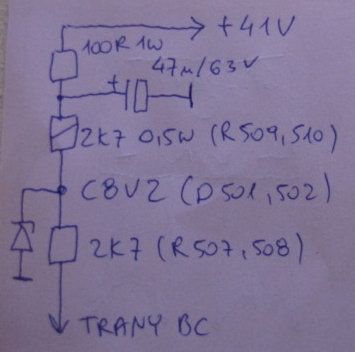 +41V
100R 1W
+
47µ/63V
2K7 0,5W (R509,510)
C8V2 (D501,502)
2K7 (R507,508)
TRANY BC